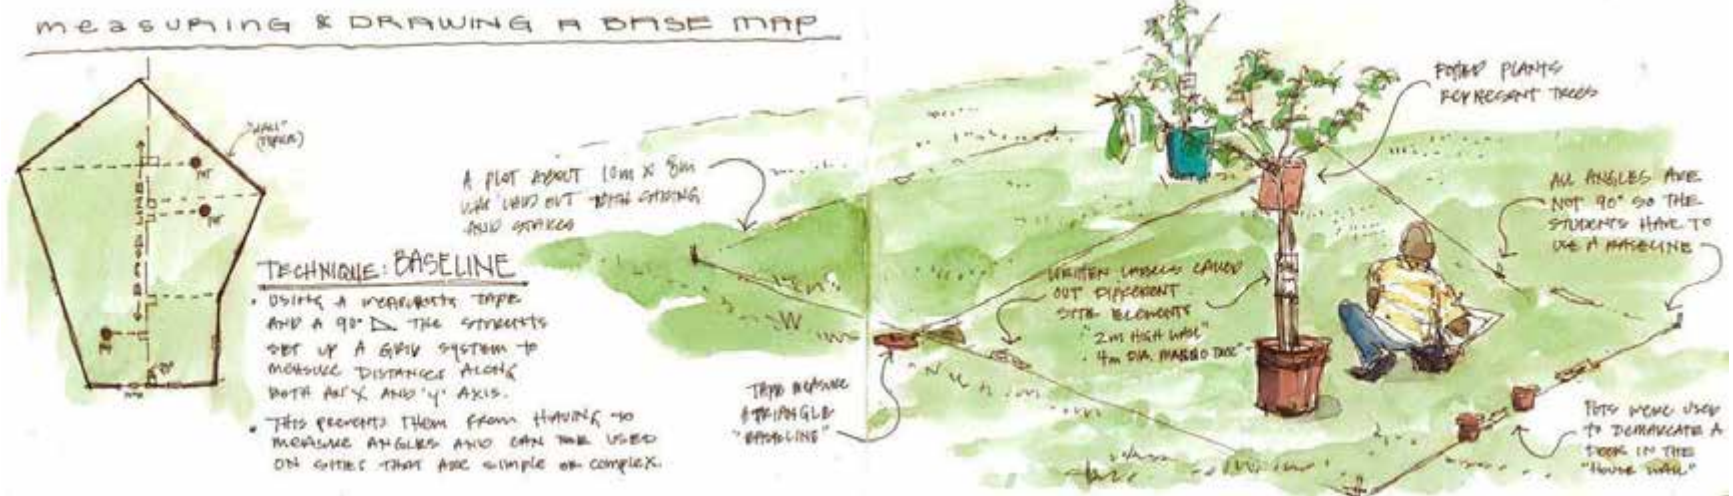 measuring & DRAWING A BASE MAP
"WALL"
POT
POT
BASE LINE
90°
A PLOT ABOUT 10m X 8m
WAS LAID OUT WITH STRING
AND STAKES
TECHNIQUE: BASELINE
• USING A MEASURING TAPE
AND A 90° THE STUDENTS
SET UP A GRID SYSTEM TO
MEASURE DISTANCES ALONG
BOTH AN 'X' AND 'Y' AXIS.
• THIS PREVENTS THEM FROM HAVING TO
MEASURE ANGLES AND CAN BE USED
ON SITES THAT ARE SIMPLE OR COMPLEX.
TAPE MEASURE
& TRIANGLE
"BASELINE"
WRITTEN LABELS CALLED
OUT DIFFERENT
SITE ELEMENTS
"2m HIGH WALL"
"4m DIA. MANGO TREE"
POTTED PLANTS
REPRESENT TREES
ALL ANGLES ARE
NOT 90° SO THE
STUDENTS HAVE TO
USE A BASELINE
POTS WERE USED
TO DEMARCATE A
DOOR IN THE
"HOUSE WALL"